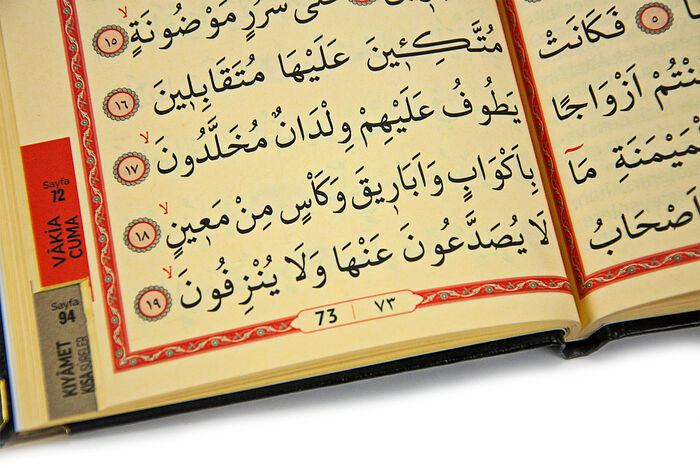 ٥ فَكَانَتْ
نْتُمْ اَزْوَاجًا
لْمَيْمَنَةِ مَٓا
اَصْحَابُ
سُرُرٍ مَوْضُونَةٍۙ ١٥
مُتَّكِـ۪ٔينَ عَلَيْهَا مُتَقَابِل۪ينَ ١٦
يَطُوفُ عَلَيْهِمْ وِلْدَانٌ مُخَلَّدُونَۙ ١٧
بِاَكْوَابٍ وَاَبَار۪يقَ وَكَأْسٍ مِنْ مَع۪ينٍۙ ١٨
لَا يُصَدَّعُونَ عَنْهَا وَلَا يُنْزِفُونَۙ ١٩
73 | ٧٣
Sayfa
72
VÂKİA
CUMA
Sayfa
94
KIYÂMET
KISA SÛRELER